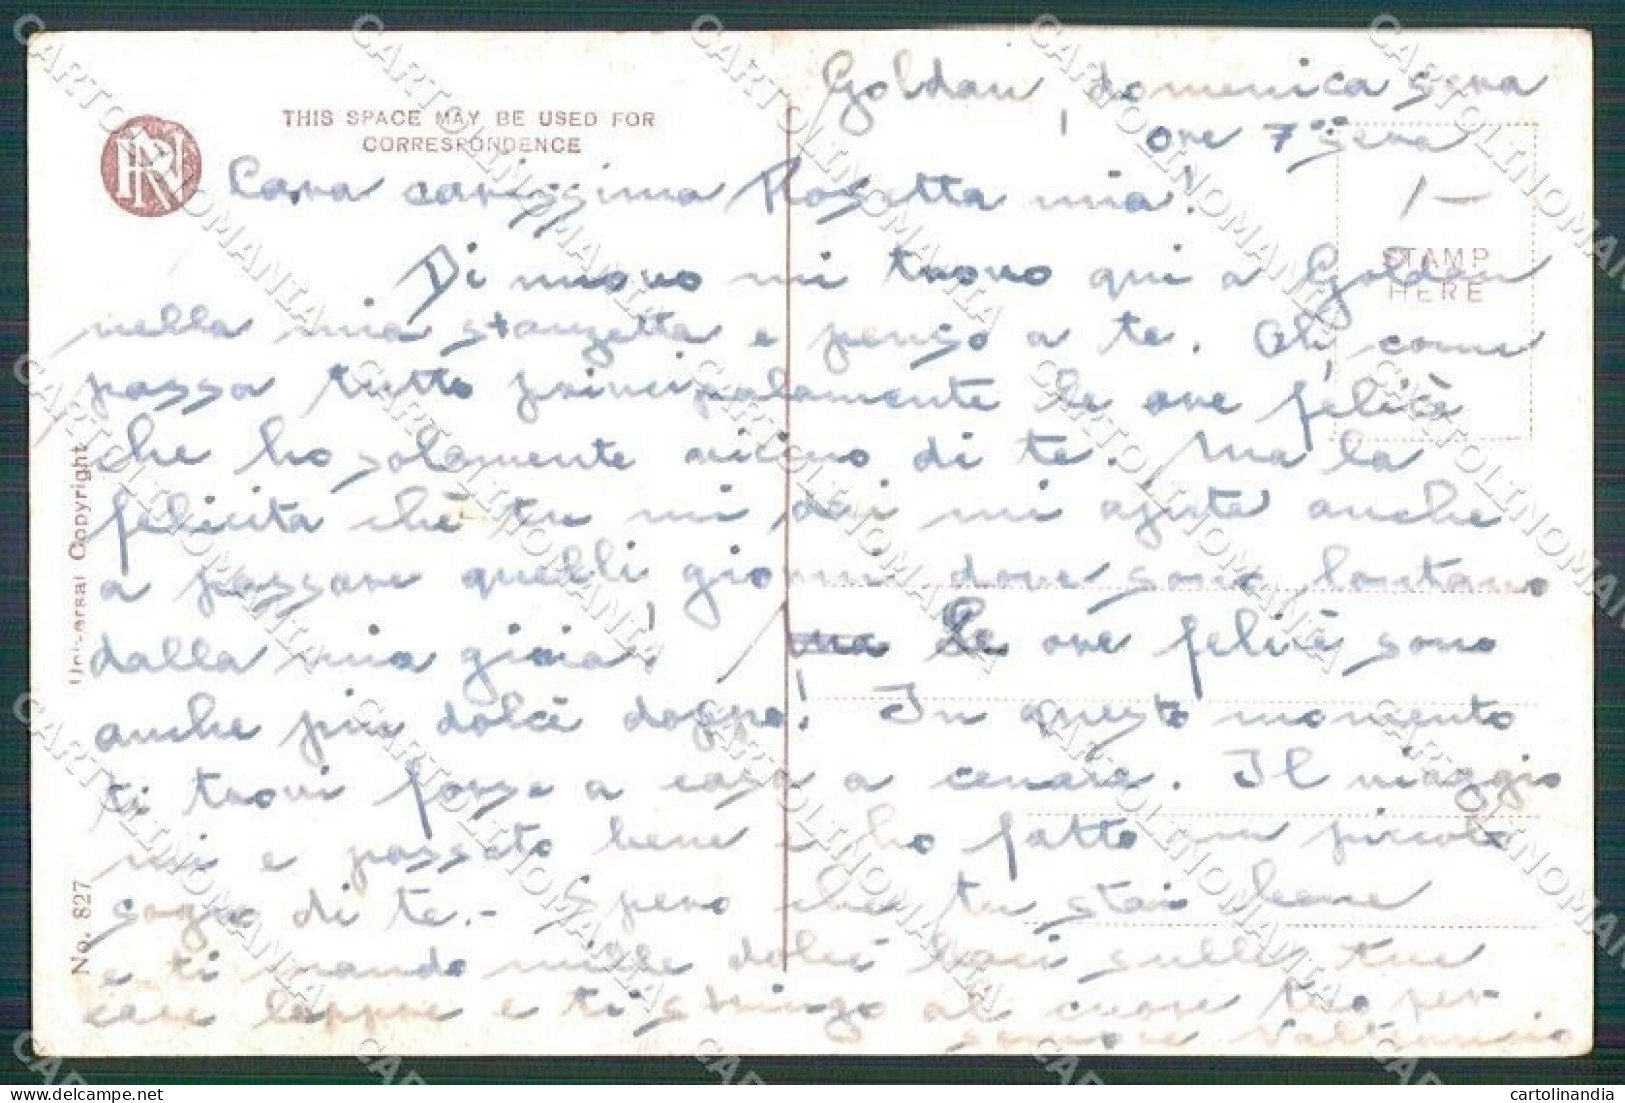 Goldau, domenica sera
ore 7 sera
THIS SPACE MAY BE USED FOR
CORRESPONDENCE
Cara carissima Rosetta mia!
1-
STAMP
HERE
Di nuovo mi trovo qui a Goldau
nella mia stanzetta e penso a te. Oh, come
passa tutto principalamente le ore felicè
che ho solamente vicino di te. Ma la
felicita chè tu mi dai mi ajuta anche
a passare quelli giorni dove sono lontano
dalla mia gioia! Le ore felicè sono
anche piu dolcè doppo! In questo momento
ti trovi forse a casa a cenare. Il viaggio
mi e passato bene e ho fatto un piccolo
sogno di te.- Spero che tu stai bene
e ti mando mille dolci baci sulle tue
care lappre e ti stringo al cuore tuo per
sempre
Universal Copyright
No. 827
CARTOLINOMANIA
cartolinandia